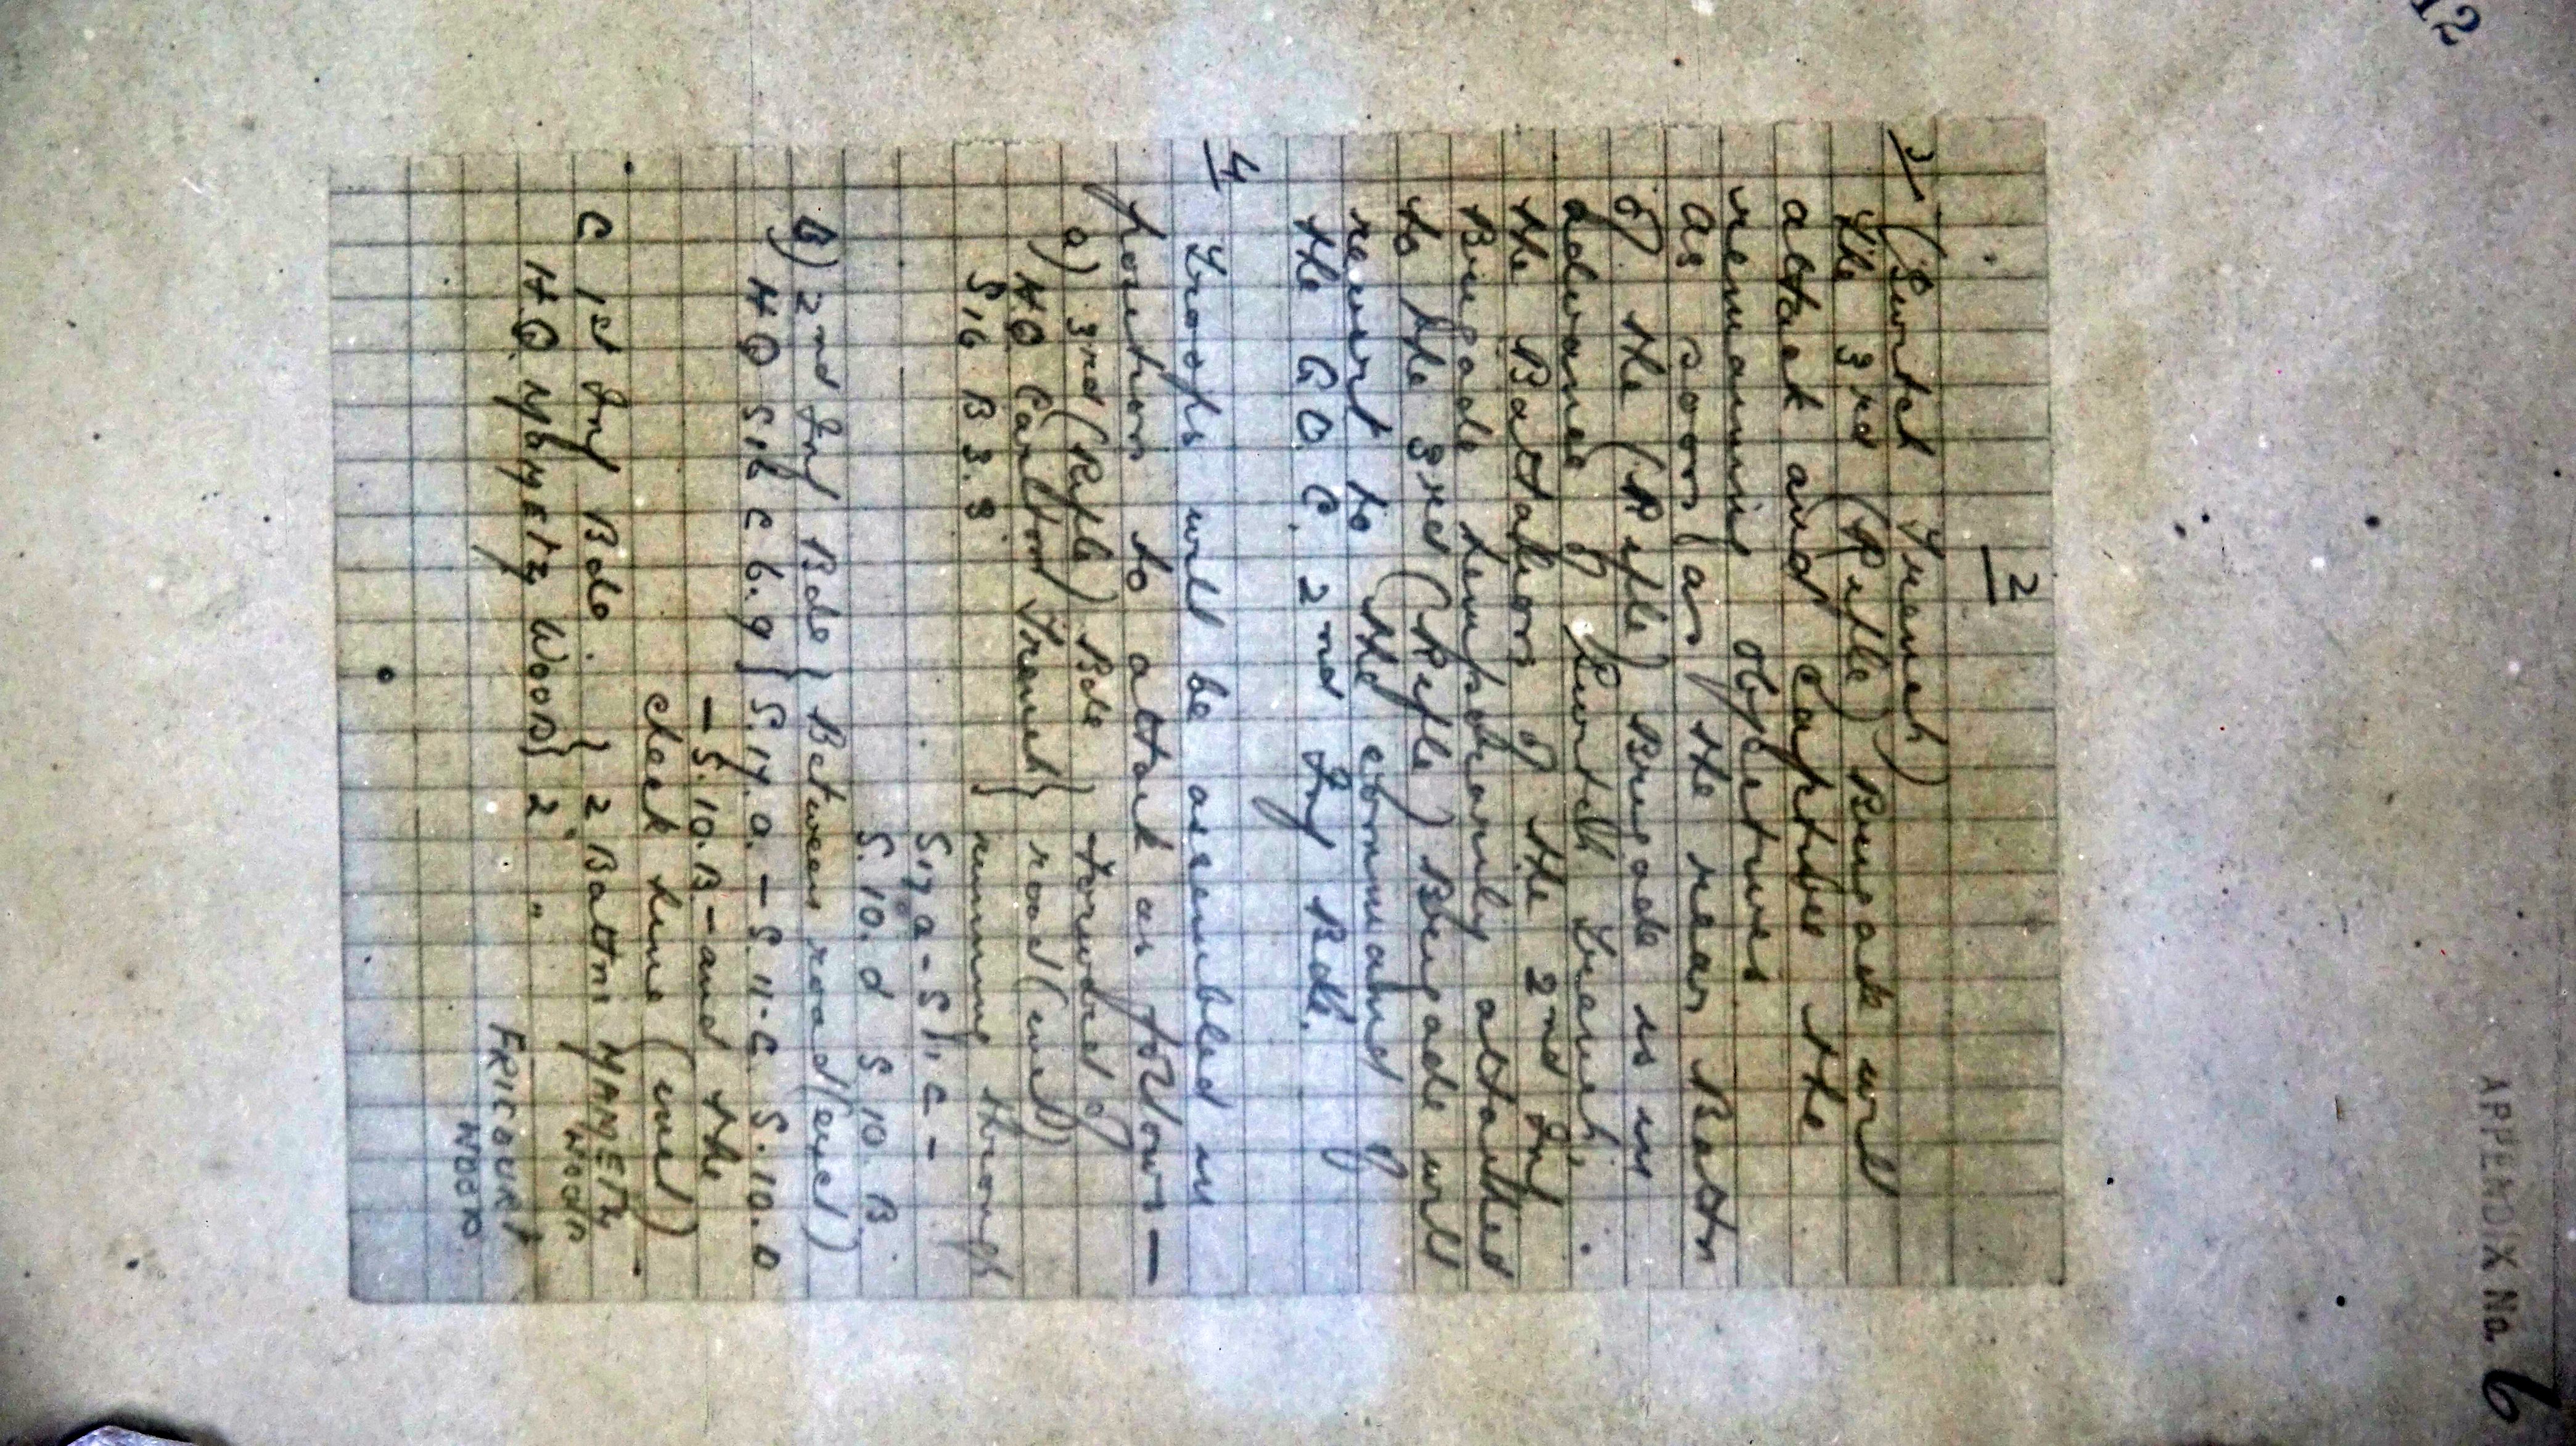 12
APPENDIX No. 6
2
3/ (Switch Trench)
The 3rd (Rifle) Brigade will
attack and capture the
remaining objectives
as soon as the rear Battn
of the (Rifle) Brigade is in
advance of Switch Trench,
the Battalion of the 2nd Inf
Brigade temporarily attached
to the 3rd (Rifle) Brigade will
revert to the command of
the G.O.C. 2nd Inf Bde.
4 Troops will be assembled in
position to attack as follows —
a) 3rd (Rifle) Bde } Forward of
HQ Carlton Trench } road (incl)
S.16 B 3.8 } running through
S.17 a - S 11. C -
S. 10. d S 10. B.
B) 2nd Inf Bde } Between road (excl)
HQ S.16 C 6.9 } S.17. a. - S. 11 - C. S. 10. D
- S. 10. B - and the
check line (incl)
C 1st Inf Bde. } 2 Battns MAMETZ WOOD
H.Q. MAMETZ WOOD } 2 " " FRICOURT WOOD